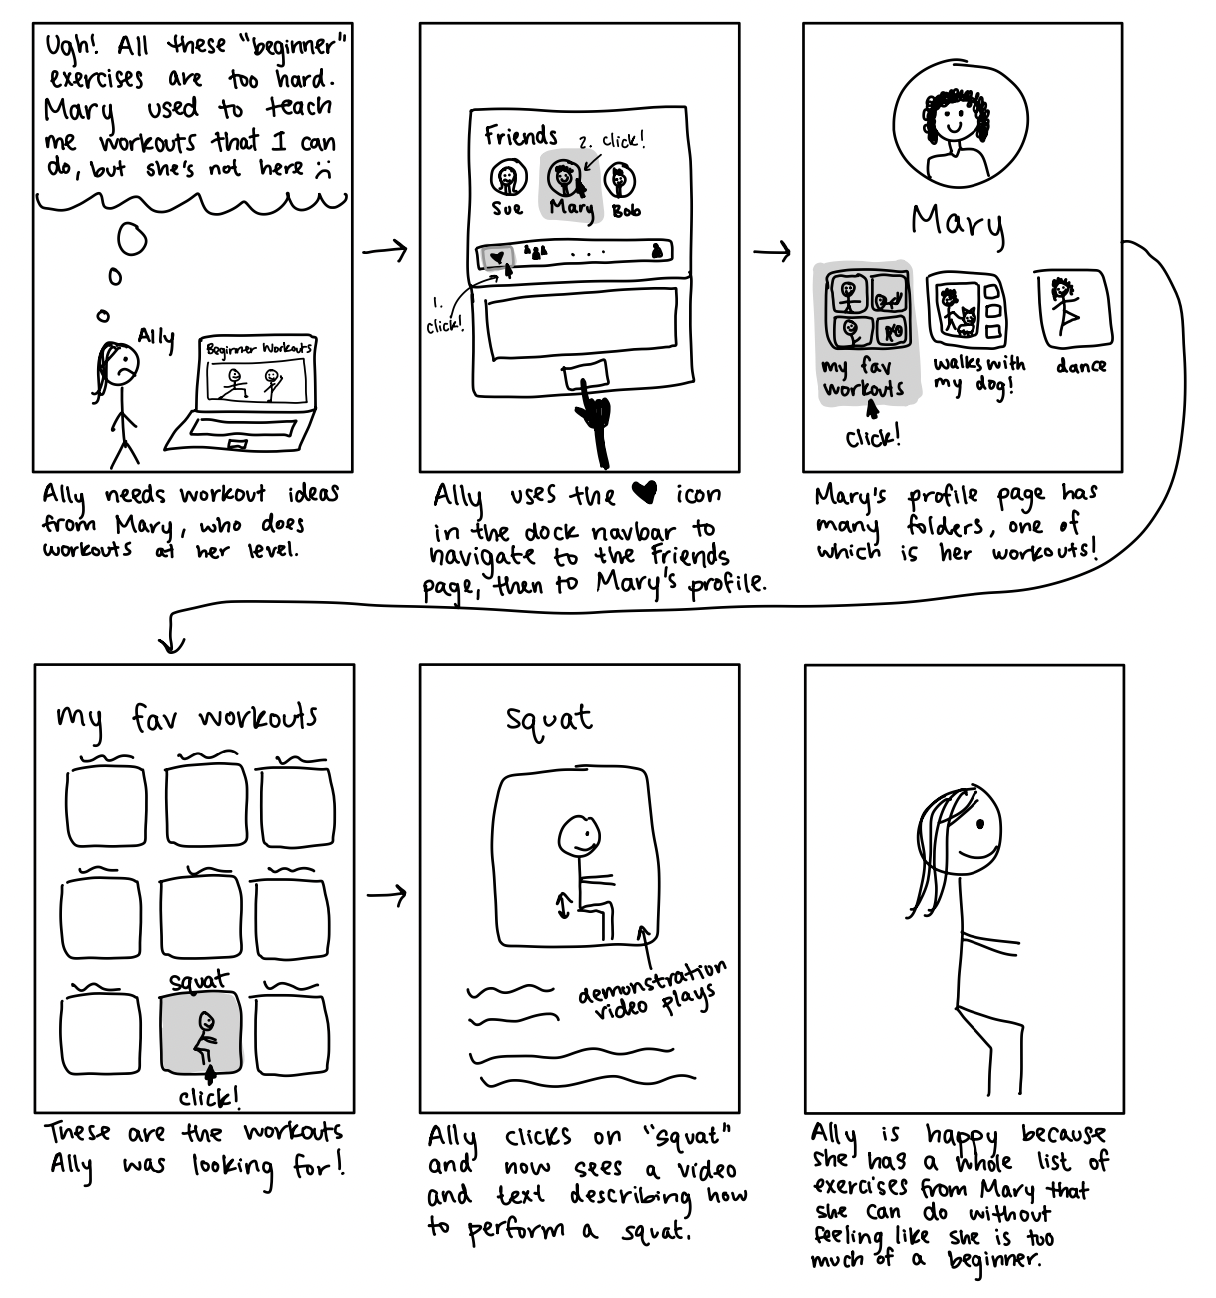 Ugh! All these "beginner"
exercises are too hard.
Mary used to teach
me workouts that I can
do, but she's not here :(
Ally
Beginner Workouts
Ally needs workout ideas
from Mary, who does
workouts at her level.
Friends
2. click!
Sue
Mary
Bob
...
1.
click!
Ally uses the ♥ icon
in the dock navbar to
navigate to the Friends
page, then to Mary's profile.
Mary
my fav
workouts
walks with
my dog!
dance
click!
Mary's profile page has
many folders, one of
which is her workouts!
my fav workouts
squat
click!
These are the workouts
Ally was looking for!
squat
demonstration
video plays
Ally clicks on "squat"
and now sees a video
and text describing how
to perform a squat.
Ally is happy because
she has a whole list of
exercises from Mary that
she can do without
feeling like she is too
much of a beginner.